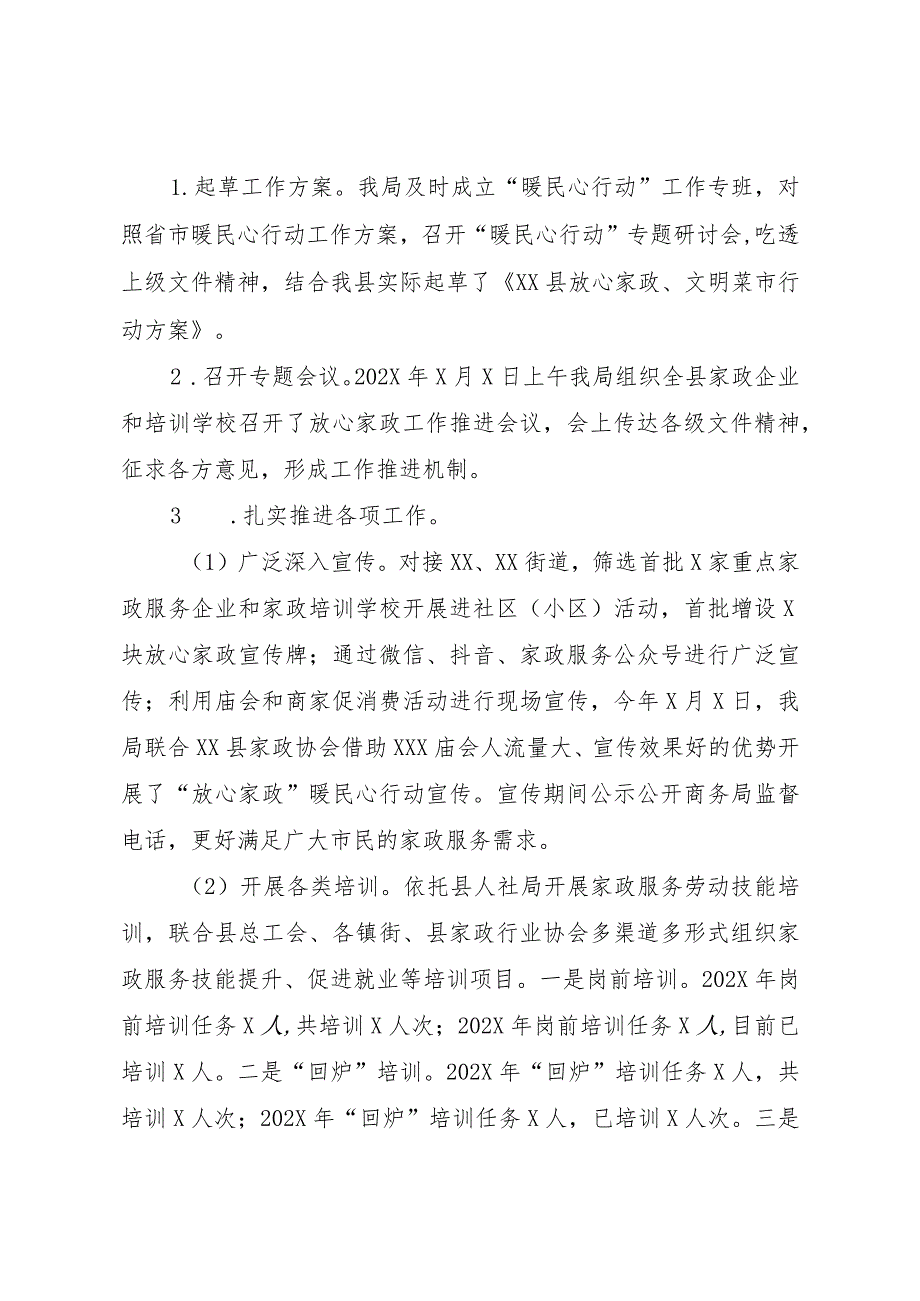 1.起草工作方案。我局及时成立“暖民心行动”工作专班，对
照省市暖民心行动工作方案，召开“暖民心行动”专题研讨会,吃透
上级文件精神，结合我县实际起草了《XX县放心家政、文明菜市行
动方案》。
2.召开专题会议。202X年X月X日上午我局组织全县家政企业
和培训学校召开了放心家政工作推进会议，会上传达各级文件精神，
征求各方意见，形成工作推进机制。
3 .扎实推进各项工作。
（1）广泛深入宣传。对接XX、XX街道，筛选首批X家重点家
政服务企业和家政培训学校开展进社区（小区）活动，首批增设X
块放心家政宣传牌；通过微信、抖音、家政服务公众号进行广泛宣
传；利用庙会和商家促消费活动进行现场宣传，今年X月X日，我
局联合XX县家政协会借助XXX庙会人流量大、宣传效果好的优势开
展了“放心家政”暖民心行动宣传。宣传期间公示公开商务局监督
电话，更好满足广大市民的家政服务需求。
（2）开展各类培训。依托县人社局开展家政服务劳动技能培
训，联合县总工会、各镇街、县家政行业协会多渠道多形式组织家
政服务技能提升、促进就业等培训项目。一是岗前培训。202X年岗
前培训任务X人,共培训X人次；202X年岗前培训任务X人,目前已
培训X人。二是“回炉”培训。202X年“回炉”培训任务X人，共
培训X人次；202X年“回炉”培训任务X人，已培训X人次。三是